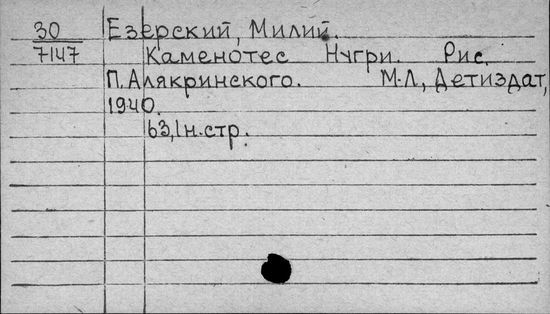 30 Езерский, Милий.
7147 Каменотес Нугри. Рис.
П. Алякринского. М-Л, Детиздат,
1940.
63,1н.стр.